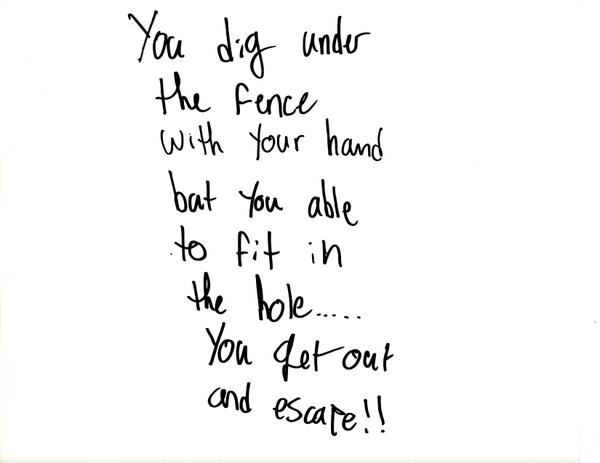 You dig under
the fence
with your hand
bat you able
to fit in
the hole.....
You get out
and escape!!